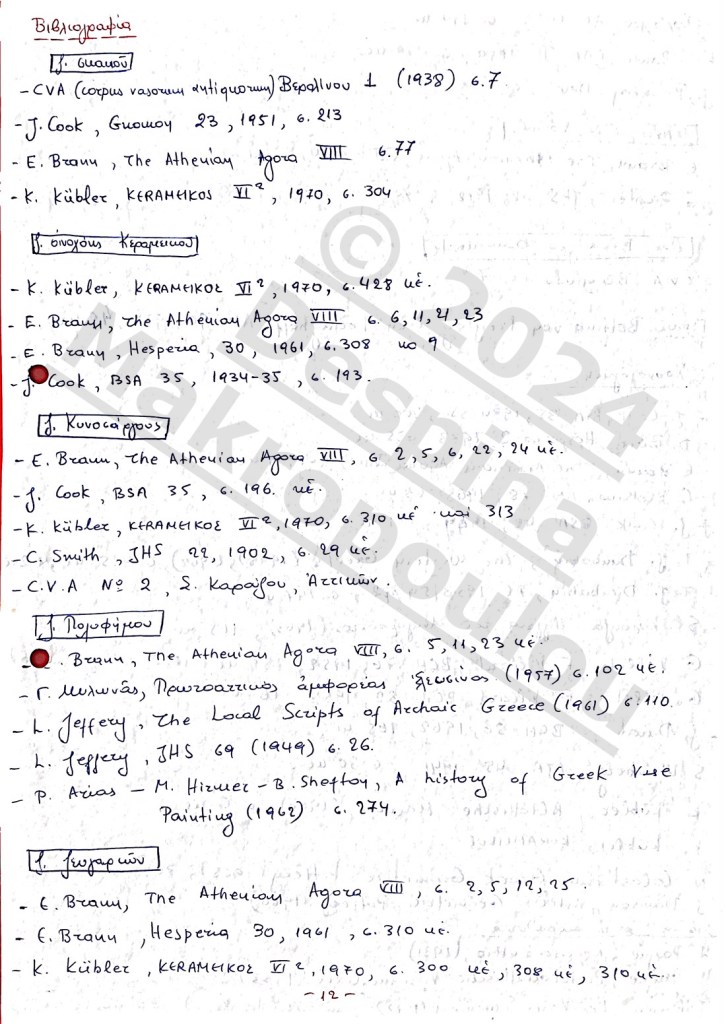 Βιβλιογραφία
ζ. σκακιού
- CVA (corpus vasorum antiquorum) Βερολίνου 1 (1938) σ. 7
- J. Cook, Gnomon 23, 1951, σ. 213
- E. Brann, The Athenian Agora VIII σ. 77
- K. Kübler, KERAMEIKOS VI², 1970, σ. 304
ζ. οινοχόης Κεραμεικού
- K. Kübler, KERAMEIKOΣ VI², 1970, σ. 428 κέ.
- E. Brann, The Athenian Agora VIII σ. 6, 11, 21, 23
- E. Brann, Hesperia, 30, 1961, σ. 308 no 9
- J. Cook, BSA 35, 1934-35, σ. 193.
ζ. Κυνοσάργους
- E. Brann, The Athenian Agora VIII, σ 2, 5, 6, 22, 24 κέ.
- J. Cook, BSA 35, σ. 196. κέ.
- K. Kübler, KERAMEIKOΣ VI², 1970, σ. 310 κέ και 313
- C. Smith, JHS 22, 1902, σ. 29 κέ.
- C.V.A Nº 2, Σ. Καρούζου, Αττικών.
ζ. Πολυφήμου
- . Brann, The Athenian Agora VIII, σ. 5, 11, 23 κέ.
- Γ. Μυλωνάς, Πρωτοαττικός ἀμφορέας Ἐλευσίνος (1957) σ. 102 κέ.
- L. Jeffery, The Local Scripts of Archaic Greece (1961) σ. 110.
- L. Jeffery, JHS 69 (1949) σ. 26.
- P. Arias - M. Hirmer - B. Shefton, A history of Greek Vase
Painting (1962) σ. 274.
ζ. ζευγαριών
- E. Brann, The Athenian Agora VIII, σ. 2, 5, 12, 25.
- E. Brann, Hesperia 30, 1961, σ. 310 κέ.
- K. Kübler, KERAMEIKOΣ VI², 1970, σ. 300 κέ, 308 κέ, 310 κέ.
- 12 -
© 2024
Despina
Makropoulou